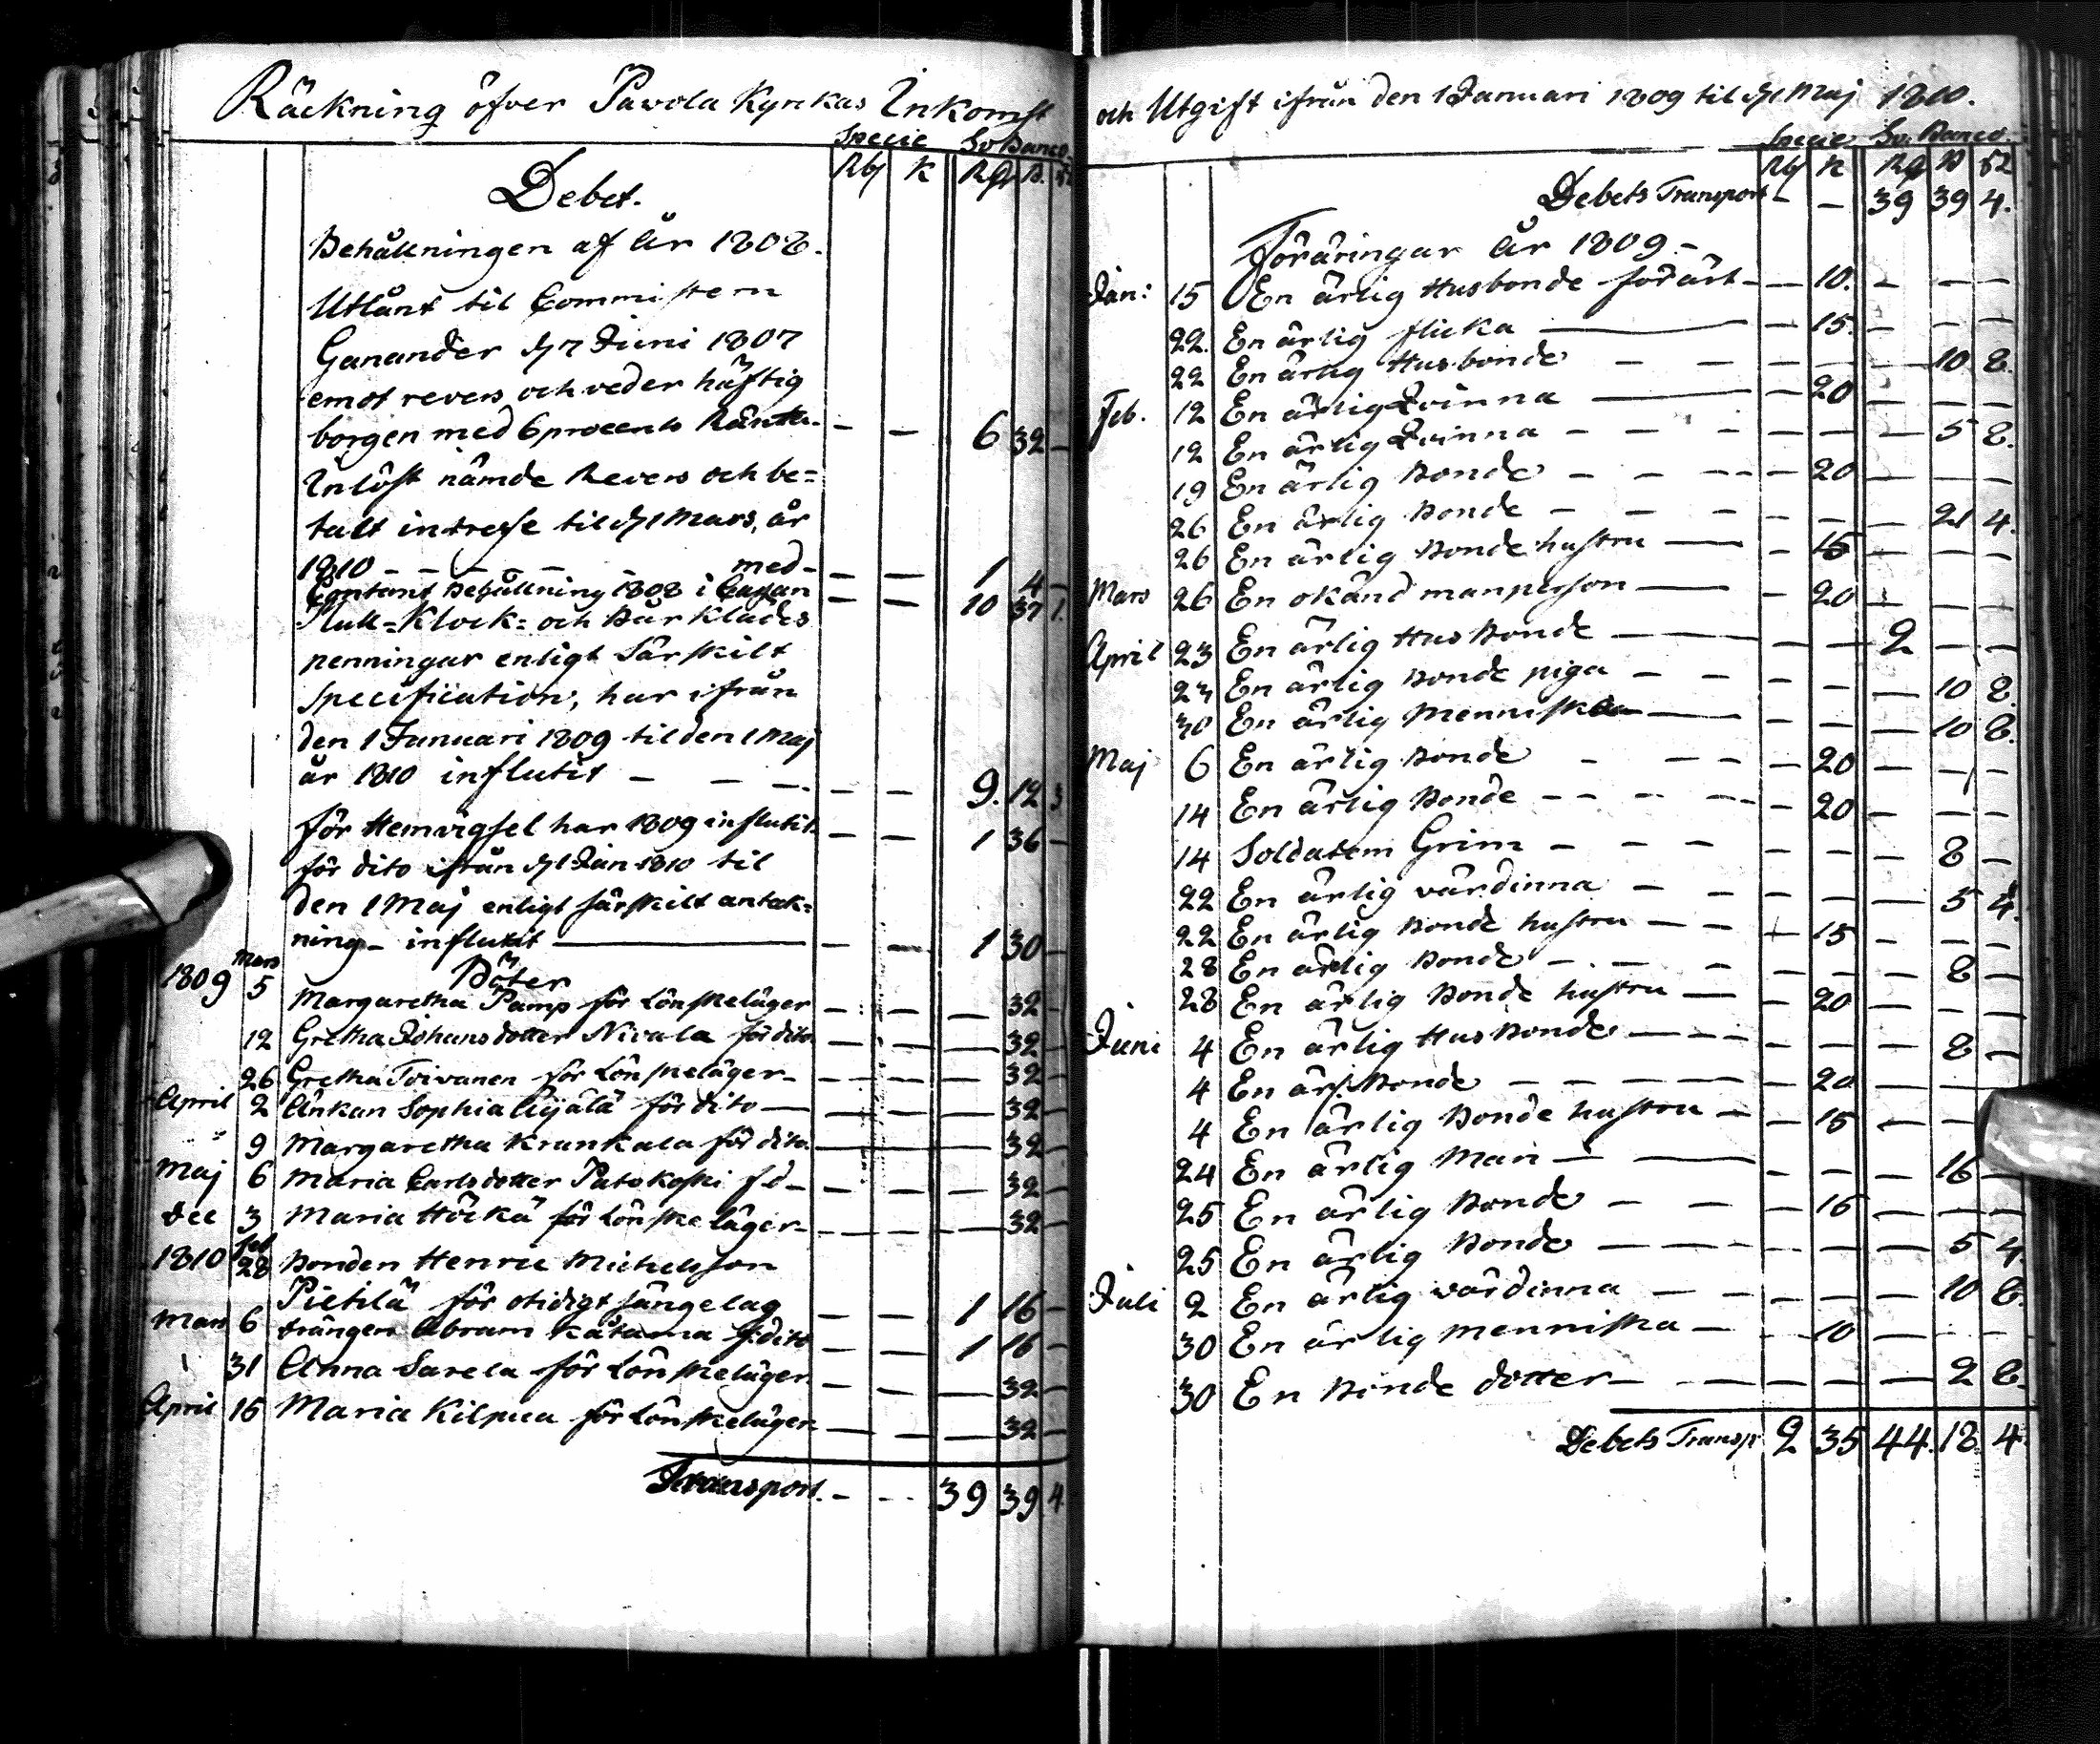 Räckning öfver Pavola Kyrkas Inkomst
Specie Sv Banco
Debet. Rbl K Rd S.
Behållningen af år 1808.
Utlånt til Commistern
Ganander d 7 Juni 1807
emot revers och veder häftig
borgen med 6 procents Ränta - - 6 32 -
Inlöst nämde Revers och be=
talt intresse til d 1 Mars, år
1810 - - - - - med - - - 1 4 -
Contant behållning 1808 i Cassan - - 10 37 1.
Skull= Klock= och Bår Klädes
penningar enligt Särskilt
Specification, har ifrån
den 1 Januari 1809 til den 1 Maj
år 1810 influtit - - - - - 9. 12 3
för Hemvigsel har 1809 influtit - - 1 36 -
för dito ifrån d 1 Jan 1810 til
den 1 Maj enligt särskilt anteck=
ning - influtit - - 1 30 -
Böter
1809 Mars 5 Margaretha Pamp för Lönskeläger - - - 32 -
12 Gretha Johansdotter Nivala för dito - - - 32 -
26 Gretha Toivanen för Lönskeläger - - - - 32 -
April 2 Ankan Sophia Äijälä för dito - - - - 32 -
9 Margaretha Krankala för dito - - - 32 -
Maj 6 Maria Carlsdotter Patokoski f.d - - - - 32 -
Dec 3 Maria Höckä för Lönskeläger - - - - 32 -
1810 Feb 28 Bonden Henric Michelsson
Pietilä för otidigt sängelag - - 1 16 -
Mars 6 drängen Abram Katama f. dito - - 1 16 -
31 Anna Sarela för Lönskeläger - - - 32 -
April 15 Maria Kilpua för Lönskeläger - - - 32 -
Transport. - - 39 39 4
och Utgift ifrån den 1 Januari 1809 til d 1 Maj 1810.
Specie Sv. Banco
Rbl K Rd S
Debets Transport - - 39 39 4.
Föräringar år 1809 -
Jan: 15 En ärlig Husbonde förärt - - 10. - - -
22. En ärlig flicka - 15. - - -
22 En ärlig Husbonde - - - - - 10 8.
Feb. 12 En ärlig Qvinna - 20 - - -
12 En ärlig Qvinna - - - - - - 5 8.
19 En ärlig Bonde - - - - 20 - - -
26 En ärlig Bonde - - - - - - 21 4.
26 En ärlig Bonde hustru - - 15 - - -
Mars 26 En okänd manperson - - 20 - - -
April 23 En ärlig Hus Bonde - - - 2 - -
23 En ärlig Bonde piga - - - - - 10 8.
30 En ärlig Menniska - - - - 10 8.
Maj 6 En ärlig Bonde - - - - 20 - - -
14 En ärlig Bonde - - - - - 20 - - -
14 Soldaten Grim - - - - - - 8 -
22 En ärlig värdinna - - - - - 5 4.
22 En ärlig Bonde hustru - - - 15 - - -
28 En ärlig Bonde - - - - - - 8 -
28 En ärlig Bonde hustru - - 20 - - -
Juni 4 En ärlig Hus Bonde - - - - - - 8 -
4 En ärl. Bonde - - - - - 20 - - -
4 En ärlig Bonde hustru - - 15 - - -
24 En ärlig Man - - - - - 16 -
25 En ärlig Bonde - - - 15 - - -
25 En ärlig Bonde - - - - 5 4.
Juli 2 En ärlig värdinna - - - - - 10 8.
30 En ärlig Menniska - - 10 - - -
30 En Bonde dotter - - - - - 2 8.
Debets Transp 2 35 44. 18. 4.